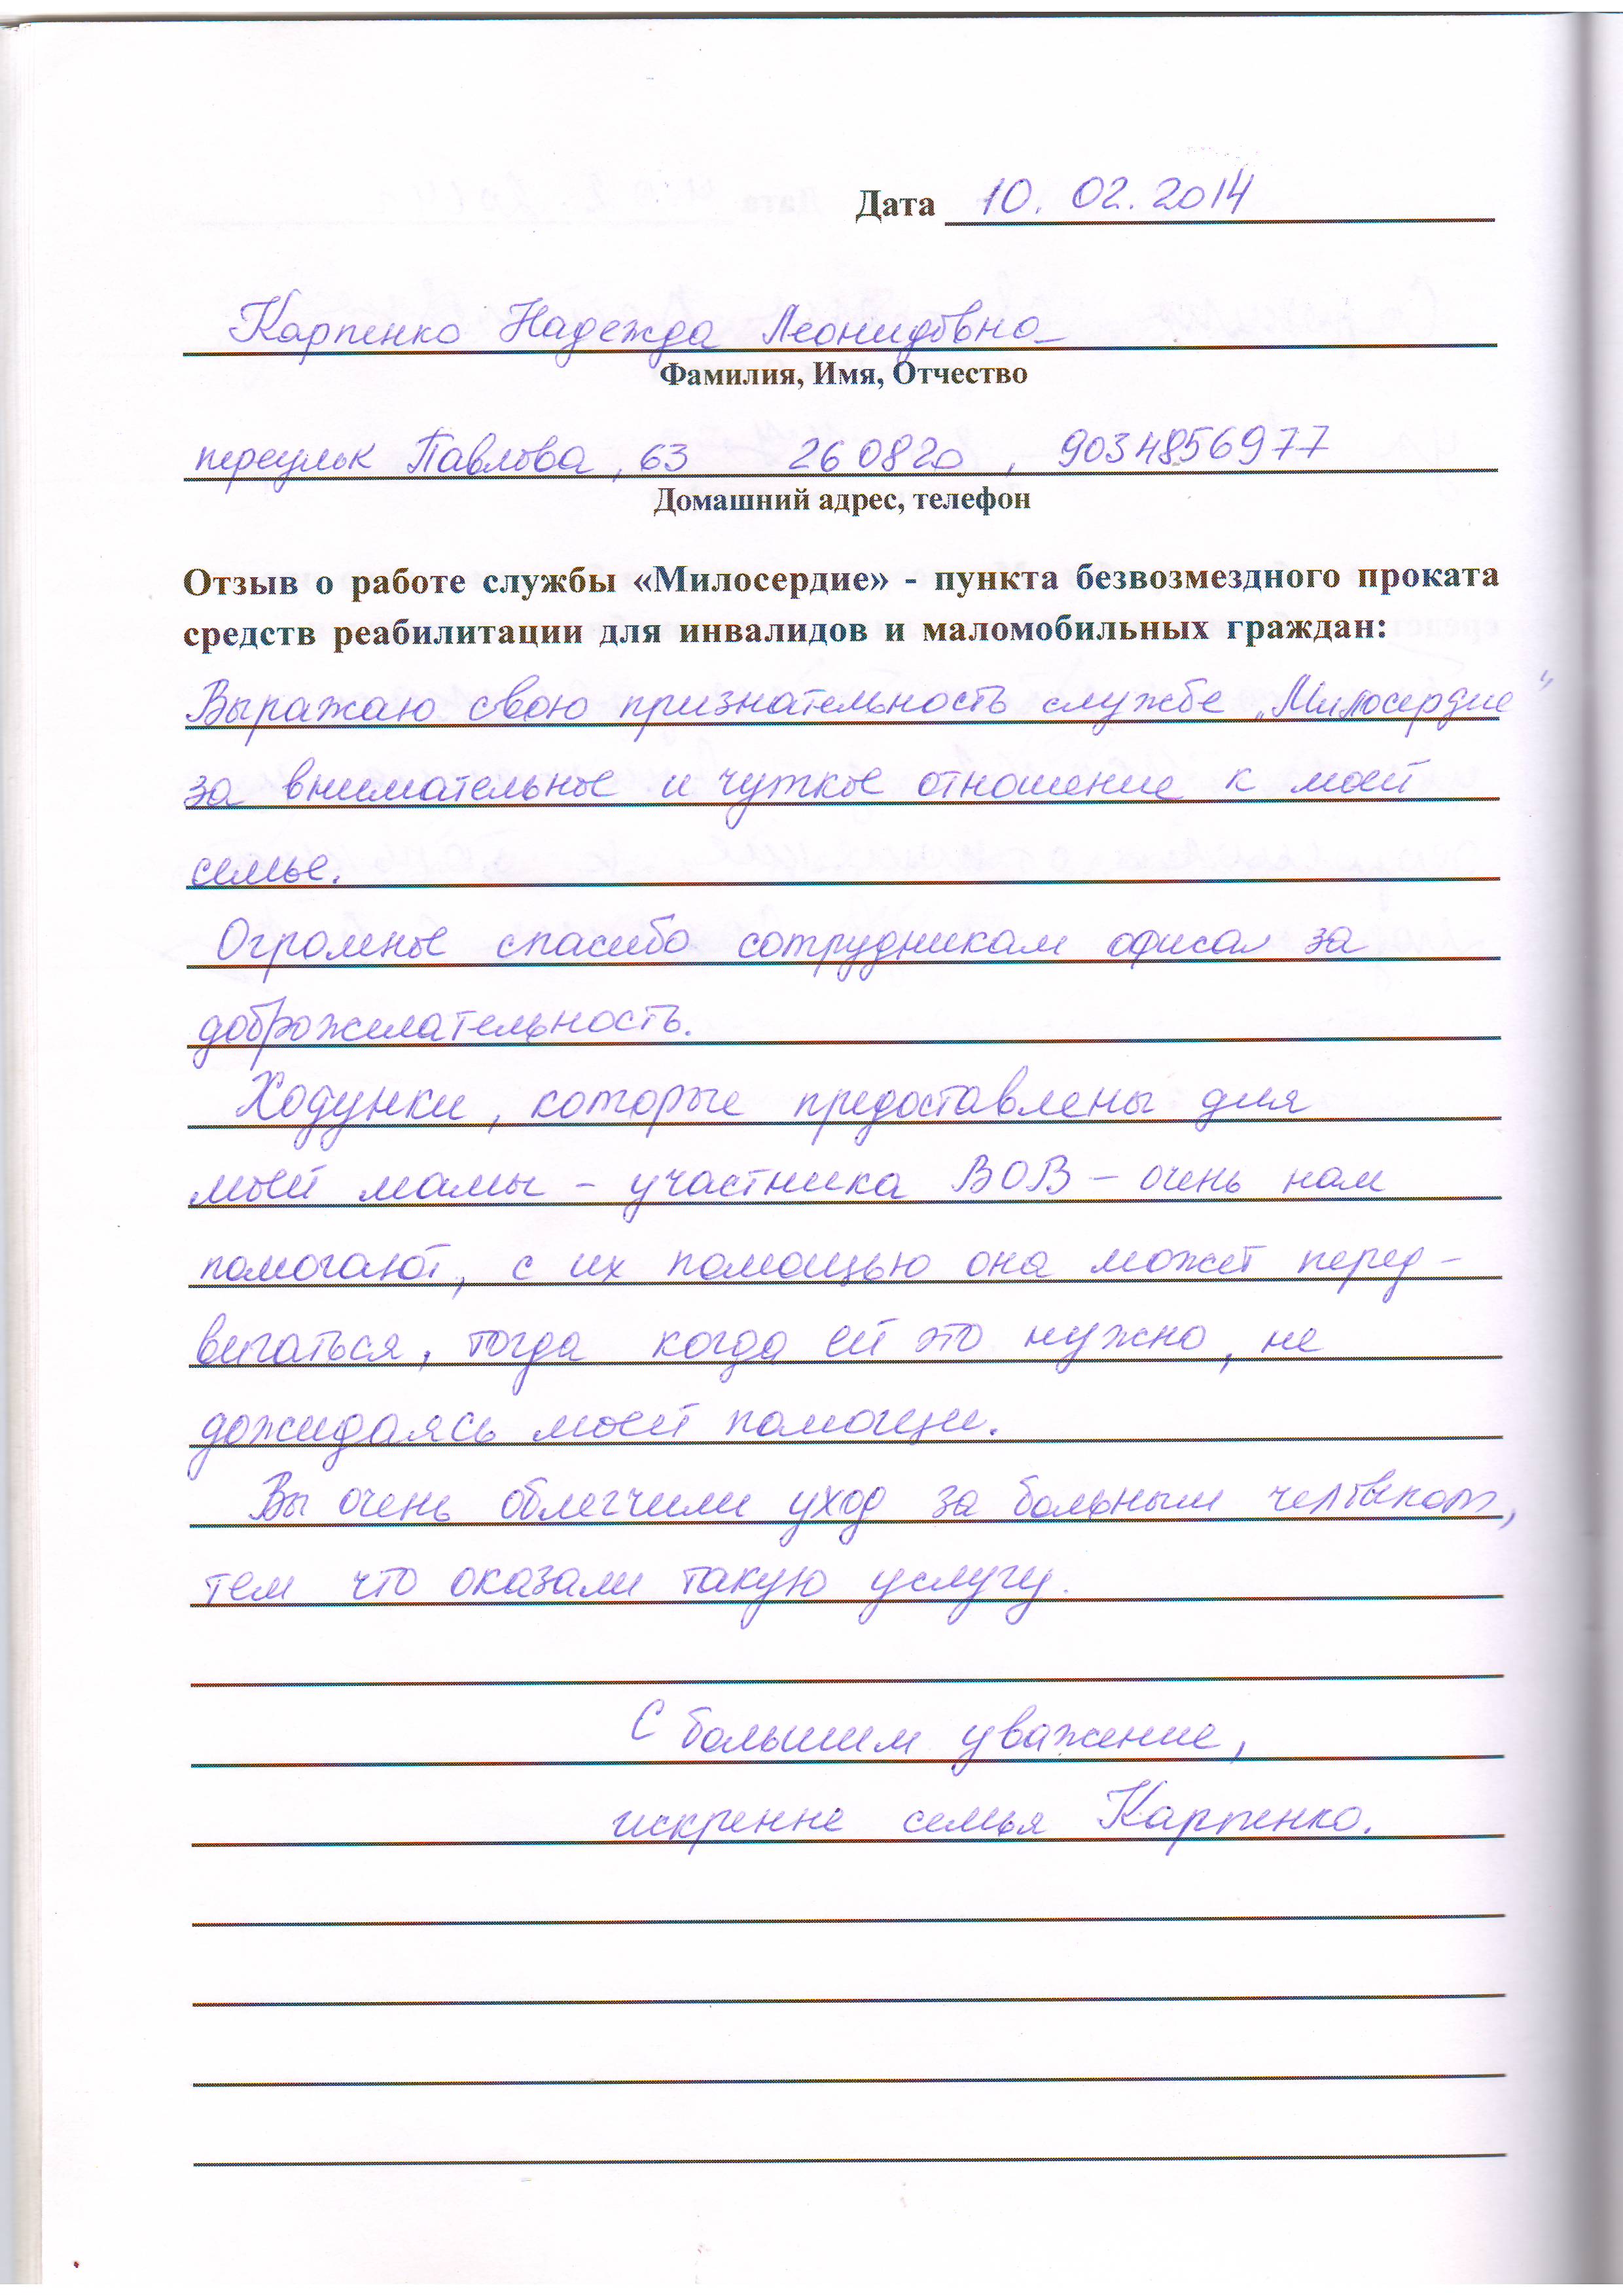 Дата 10. 02. 2014
Карпенко Надежда Леонидовна
Фамилия, Имя, Отчество
переулок Павлова, 63 260820, 9034856977
Домашний адрес, телефон
Отзыв о работе службы «Милосердие» - пункта безвозмездного проката
средств реабилитации для инвалидов и маломобильных граждан:
Выражаю свою признательность службе „Милосердие"
за внимательное и чуткое отношение к моей
семье.
Огромное спасибо сотрудникам офиса за
доброжелательность.
Ходунки, которые предоставлены для
моей мамы – участника ВОВ – очень нам
помогают, с их помощью она может перед-
вигаться, тогда когда ей это нужно, не
дожидаясь моей помощи.
Вы очень облегчили уход за больным человеком,
тем что оказали такую услугу.
С большим уважение,
искренне семья Карпенко.